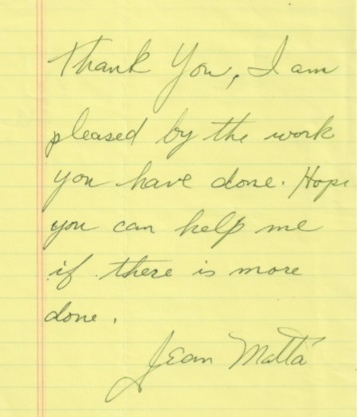 Thank You, I am
pleased by the work
you have done. Hope
you can help me
if there is more
done.
Jean Matta